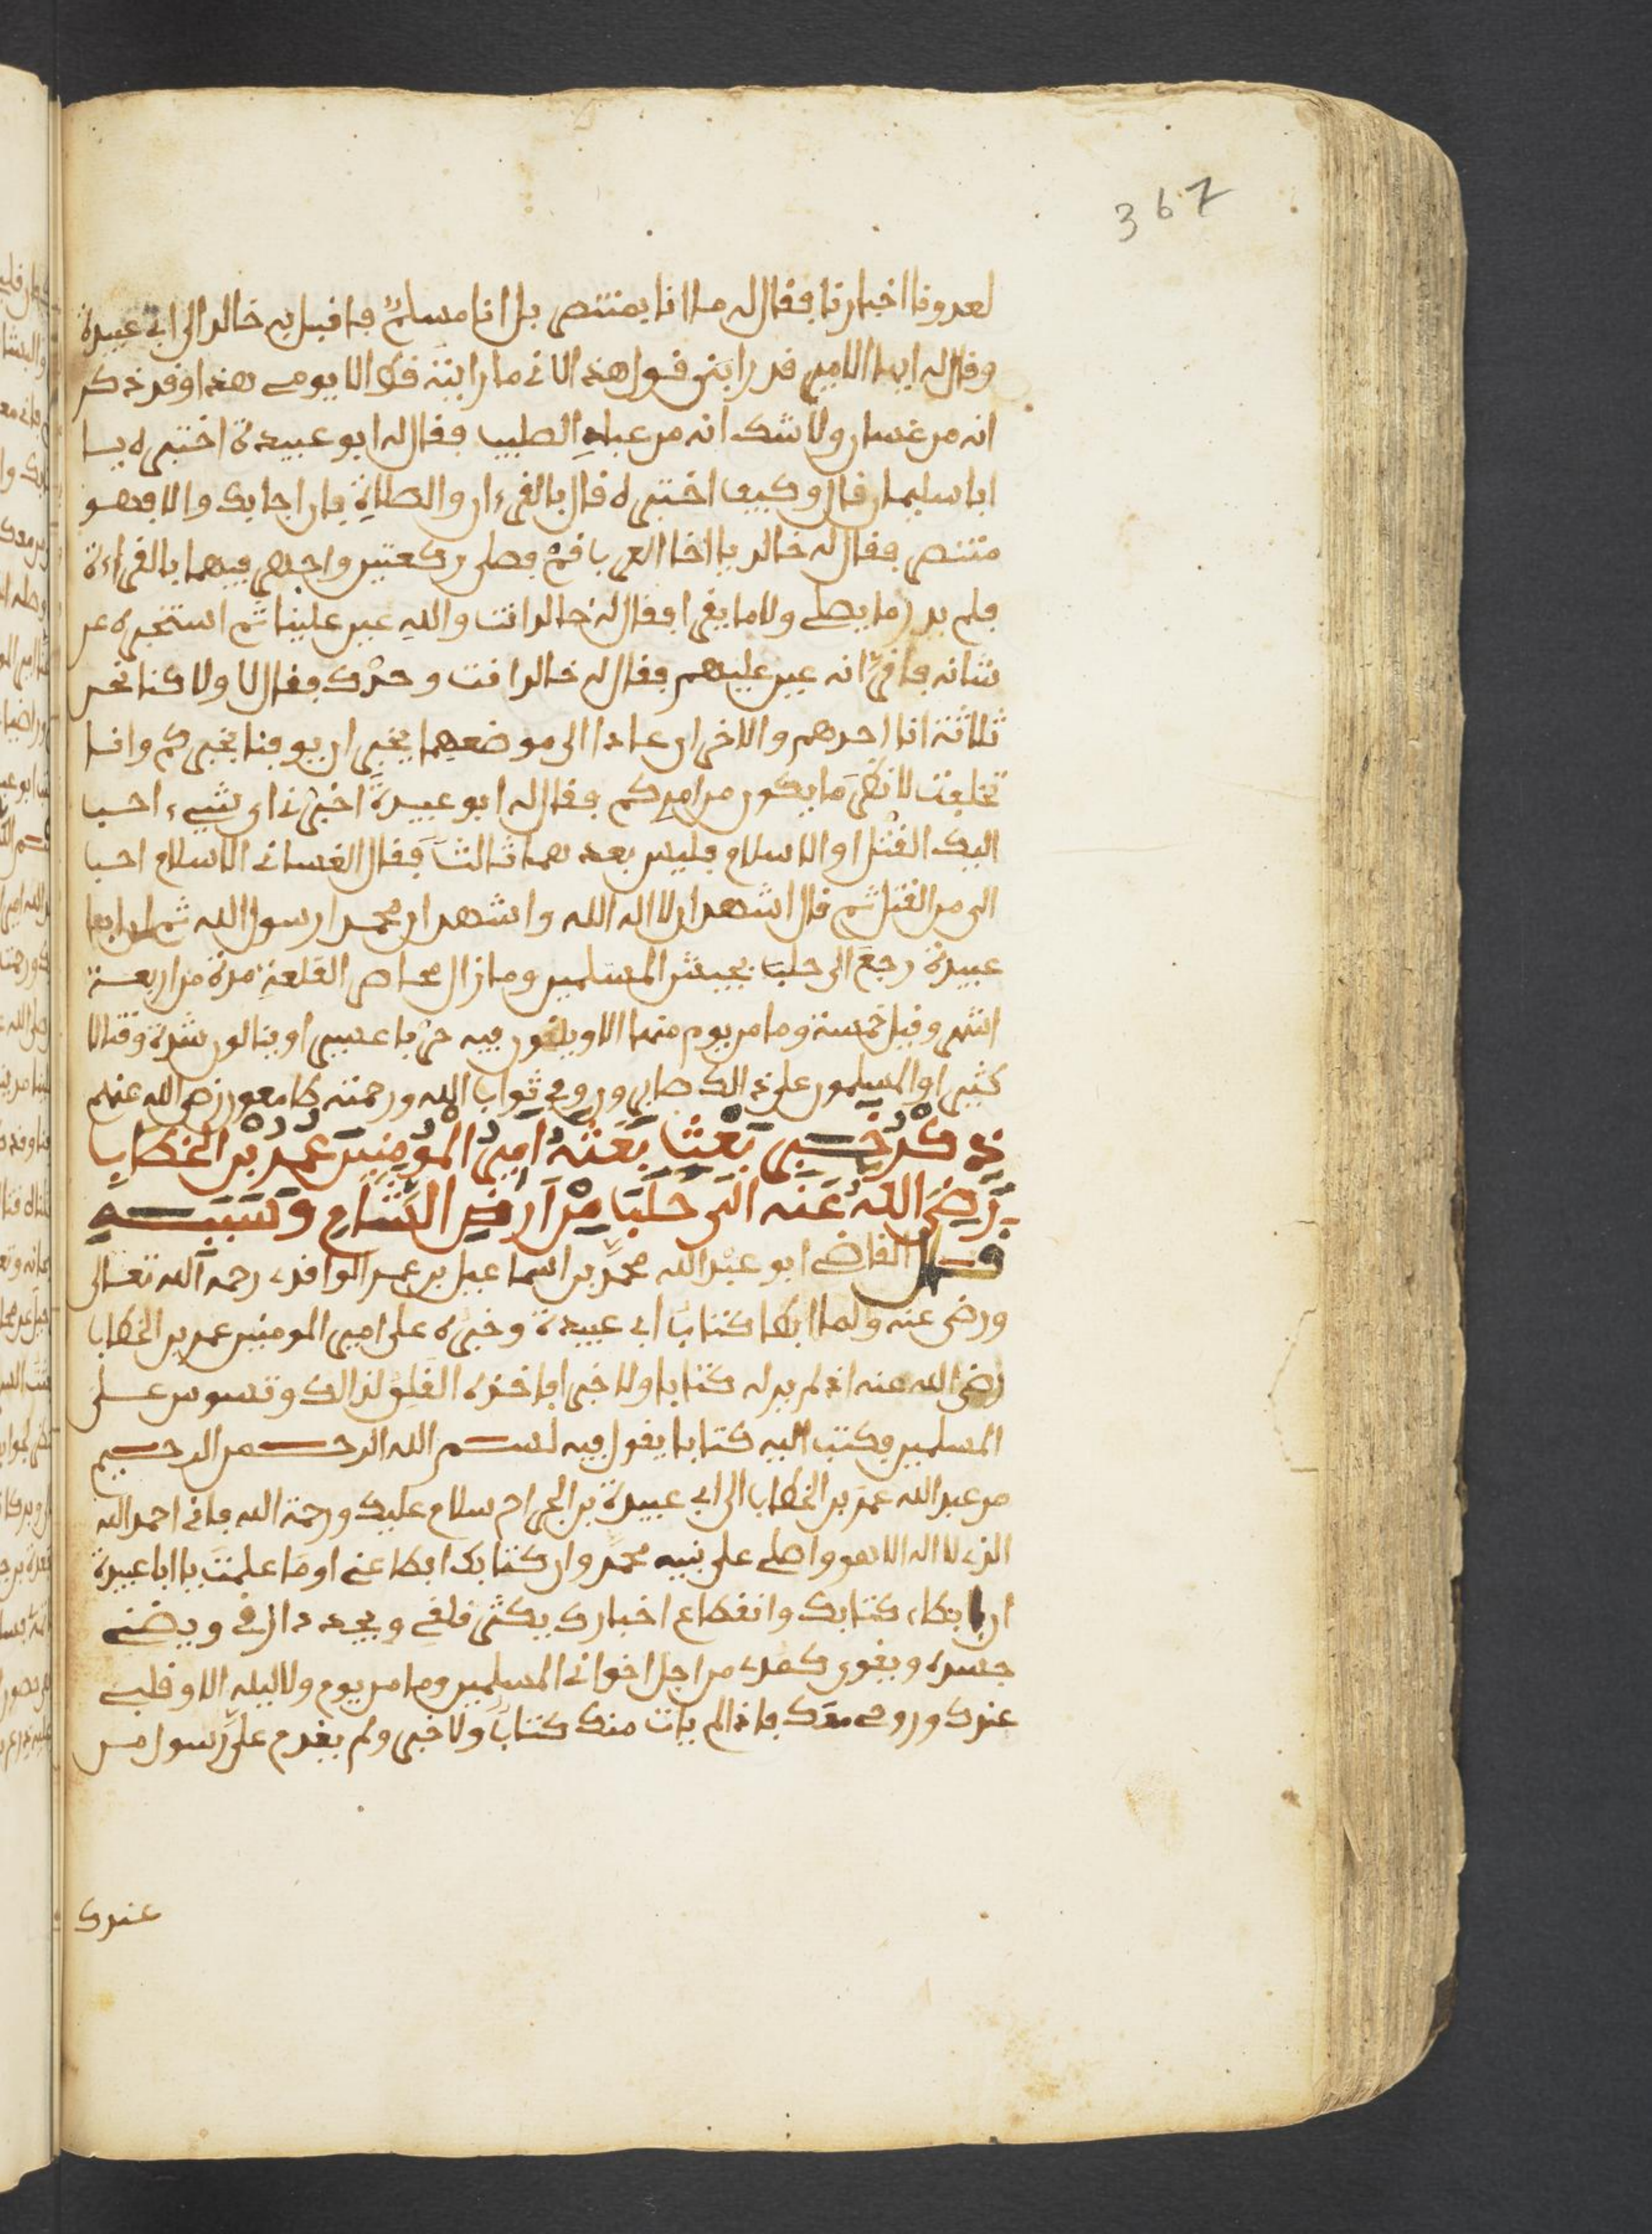 367
لعدونا اخبارنا فقال له ما انا بمتنصر بل انا مسلم فاقبل به خالد الى ابي عبيدة
وقال له ايها الامير قد رابني قول هذا لاني ما رايته قط الا يومي هذا وقد ذكر
انه من غسان ولا شك انه من عباد الصليب فقال له ابو عبيدة اختبره يا
ابا سليمان قال وكيف اختبره قال بالقرءان والصلاة فان اجابك والا فهو
متنصر فقال له خالد يا اخا العرب قم فصلي ركعتين واجهر فيهما بالقراءة
فلم يدر ما يصلي ولا ما يقرا فقال له خالد انت والله عين علينا ثم استخبره عن
شانه فاقر انه عين عليهم فقال له خالد انت وحدك فقال لا ولا كنا نحن
ثلاثة انا احدهم والاخران عادا الى موضعهما يخبران يوقنا بخبركم وانا
تخلفت لانظر ما يكون من امركم فقال له ابو عبيدة اخبرني اي شيء احب
اليك القتل او الاسلام فليس بعدهما ثالث فقال الغساني الاسلام احب
الي من القتل ثم قال اشهد ان لا اله الا الله واشهد ان محمدا رسول الله ثم ان ابا
عبيدة رجع الى حلب بجيش المسلمين وما زال محاصر القلعة مدة من اربعة
اشهر وقيل خمسة وما من يوم منها الا ويلقون فيه حربا عسيرا وينالون شدة وقتالا
كثيرا والمسلمون على ذالك صابرون وفي ثواب الله ورحمته طامعون رضي الله عنهم
ذكر خبر بعث بعثه امير المومنين عمر بن الخطاب
رضي الله عنه الى حلب من ارض الشام وسببه
قال القاضي ابو عبد الله محمد بن اسماعيل بن عمر الواقدي رحمه الله تعالى
ورضي عنه ولما ابطا كتاب ابي عبيدة وخبره على امير المومنين عمر بن الخطاب
رضي الله عنه اذ لم يرد له كتابا ولا خبرا فاخذه القلق لذالك وتسوس على
المسلمين فكتب اليه كتابا يقول فيه بسم الله الرحمن الرحيم
من عبد الله عمر بن الخطاب الى ابي عبيدة بن الجراح سلام عليك ورحمة الله فاني احمد الله
الذي لا اله الا هو واصلي على نبيه محمد وان كتابك ابطا عني او ما علمت يا ابا عبيدة
ان ابطاء كتابك وانقطاع اخبارك يكثر قلقي ويجدد ارقي ويضني
جسدي ويقوي كمدي من اجل اخواني المسلمين وما من يوم ولا ليلة الا وقلبي
عندك وروحي معك فاذا لم يات منك كتاب ولا خبر ولم يقدم علي رسول من
عندك